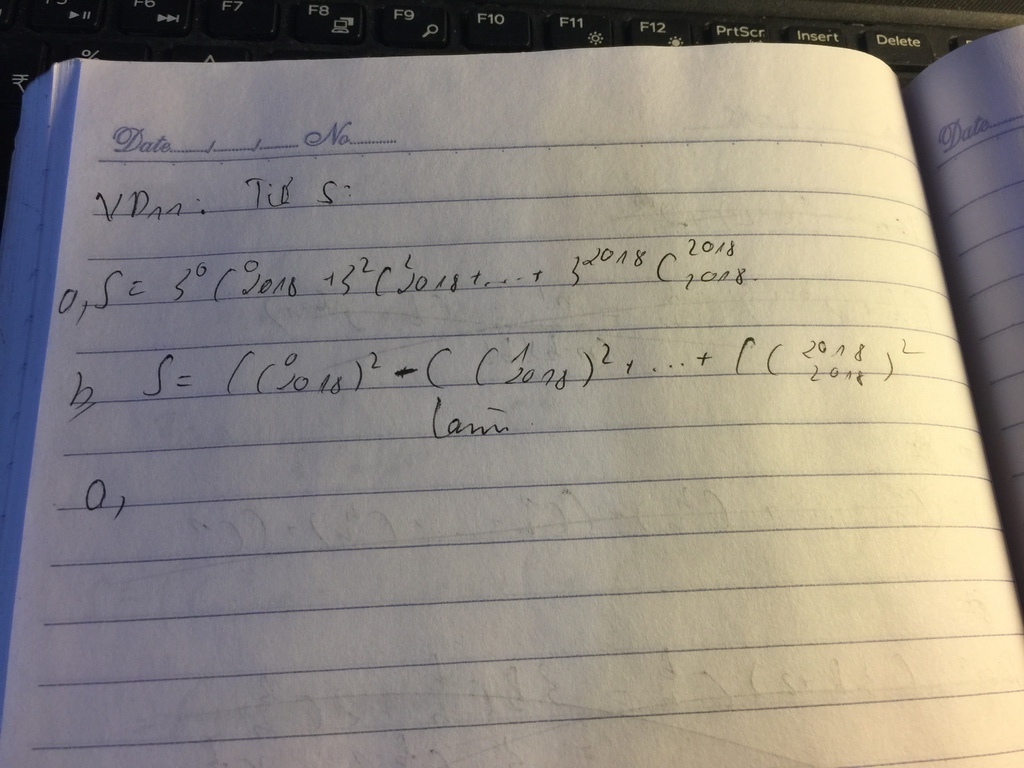 F6 F7 F8 F9 F10 F11 F12 PrtScr Insert Delete
₹ %
Date / / No Date
VD11: Tính S:
a, S = 3⁰ C⁰₂₀₁₈ + 3² C²₂₀₁₈ + ... + 3²⁰¹⁸ C²⁰¹⁸₂₀₁₈.
b, S = (C⁰₂₀₁₈)² - (C¹₂₀₁₈)² + ... + (C²⁰¹⁸₂₀₁₈)²
a,